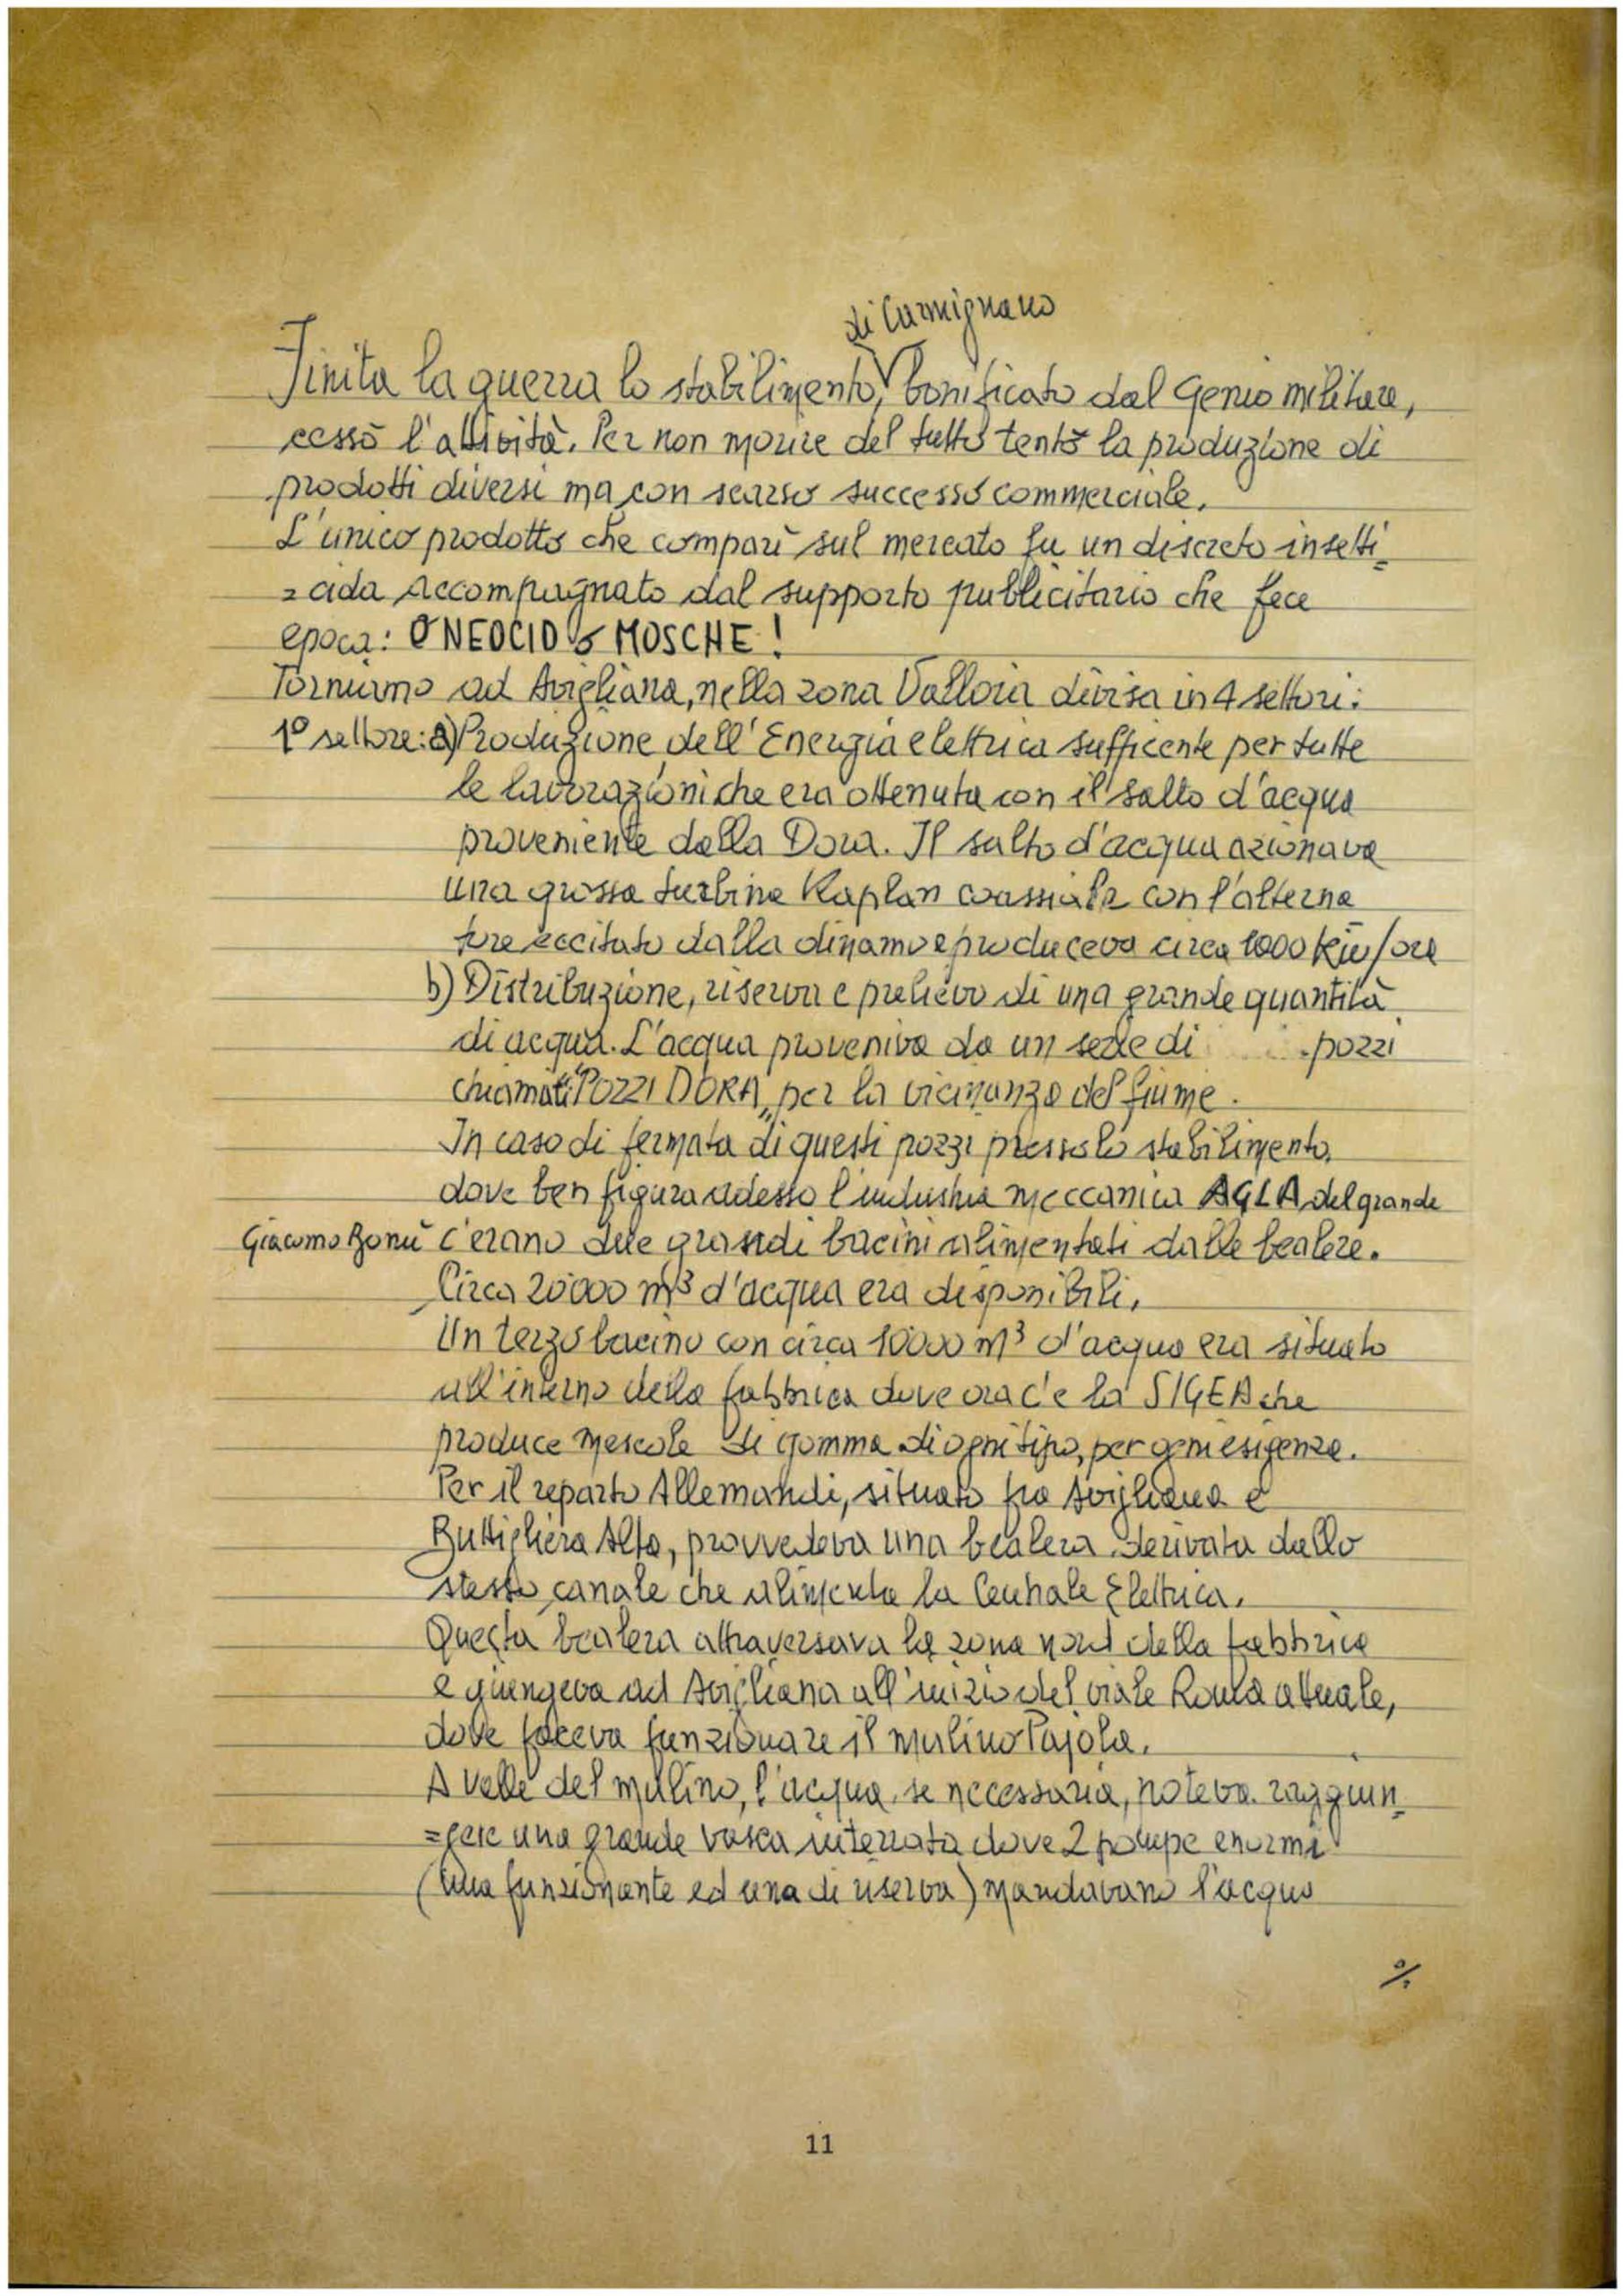 di Carmignano
Finita la guerra lo stabilimento, bonificato dal Genio militare,
cessò l'attività. Per non morire del tutto tentò la produzione di
prodotti diversi ma con scarso successo commerciale.
L'unico prodotto che comparì sul mercato fu un discreto insetti-
=cida accompagnato dal supporto pubblicitario che fece
epoca: O NEOCID O MOSCHE!
Torniamo ad Avigliana, nella zona Valloia divisa in 4 settori:
1° settore: a) Produzione dell'Energia elettrica sufficente per tutte
le lavorazioni che era ottenuta con il salto d'acqua
proveniente dalla Dora. Il salto d'acqua azionava
una grossa turbina Kaplan coassiale con l'alterna
tore eccitato dalla dinamo e produceva circa 1000 Kw/ora
b) Distribuzione, riserva e prelievo di una grande quantità
di acqua. L'acqua proveniva da un serie di pozzi
chiamati "POZZI DORA" per la vicinanza del fiume.
In caso di fermata di questi pozzi presso lo stabilimento,
dove ben figura adesso l'industria meccanica AGLA del grande
Giacomo Bonù c'erano due grandi bacini alimentati dalle bealere.
Circa 20000 m3 d'acqua era disponibili.
Un terzo bacino con circa 10000 m3 d'acqua era situato
all'interno della fabbrica dove ora c'e la SIGEA che
produce mescole di gomma di ogni tipo, per ogni esigenza.
Per il reparto Allemandi, situato fra Avigliana e
Buttigliera Alta, provvedeva una bealera derivata dallo
stesso canale che alimenta la Centrale Elettrica.
Questa bealera attraversava la zona nord della fabbrica
e giungeva ad Avigliana all'inizio del viale Roma attuale,
dove faceva funzionare il mulino Pajola.
A valle del mulino, l'acqua, se necessaria, poteva raggiun-
=gere una grande vasca interrata dove 2 pompe enormi
(una funzionante ed una di riserva) mandavano l'acqua
%
11